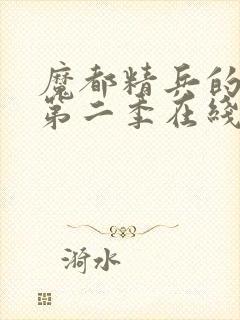 魔都精兵的
第二季在线
漪水